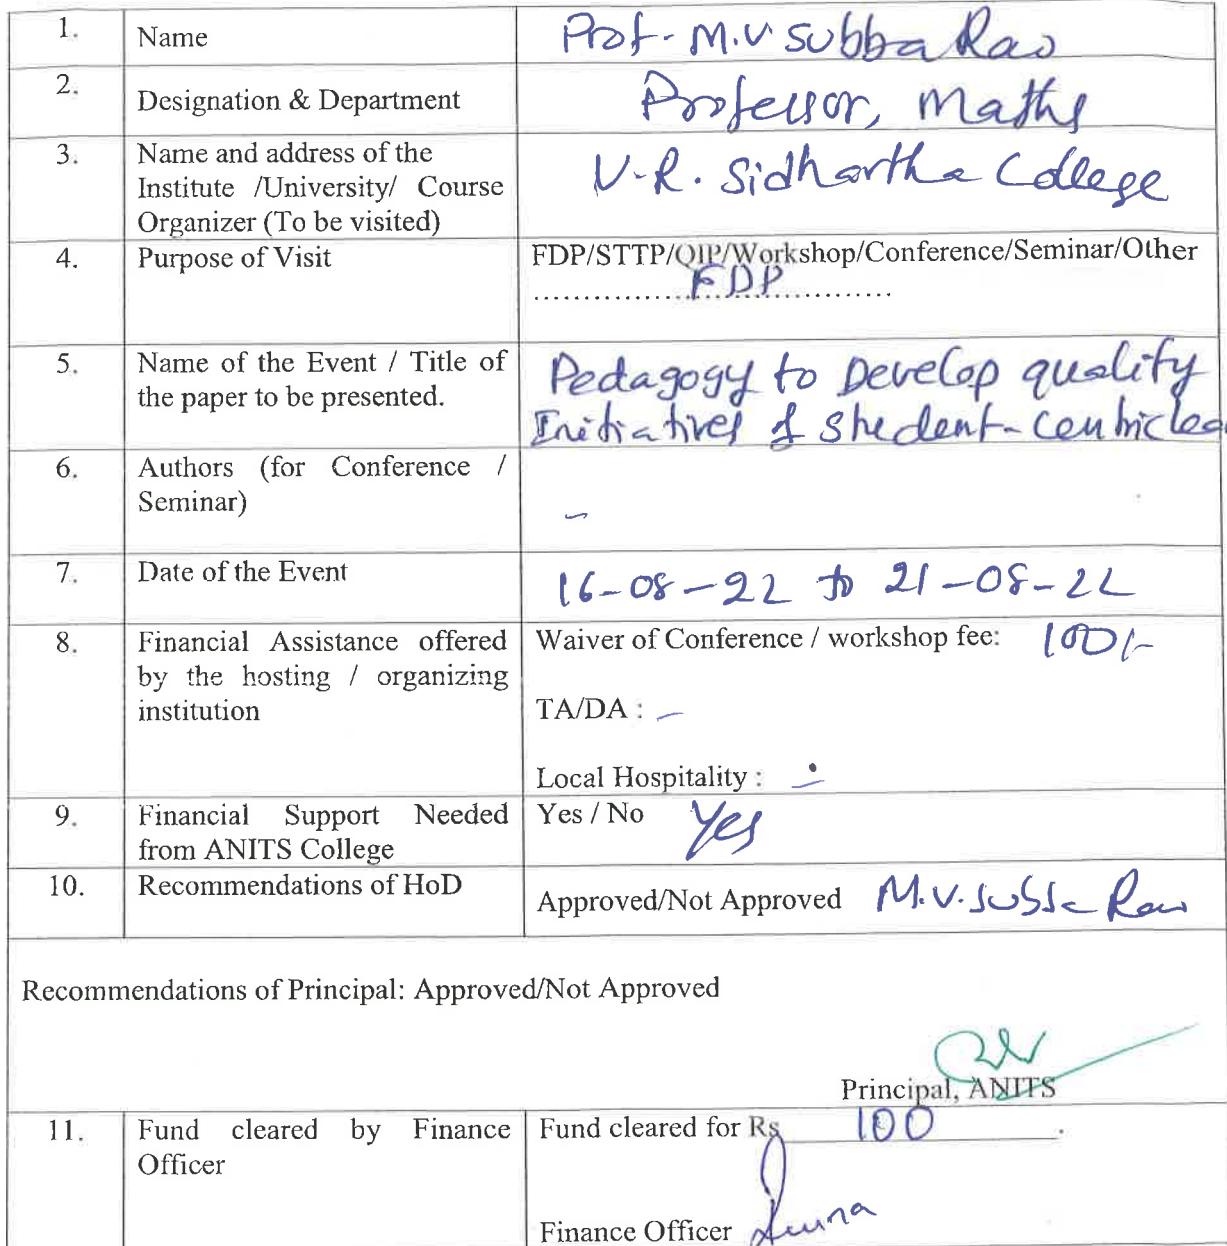 1. Name Prof. M.V Subba Rao
2. Designation & Department Professor, Maths
3. Name and address of the Institute /University/ Course Organizer (To be visited) V.R. Sidhartha College
4. Purpose of Visit FDP/STTP/QIP/Workshop/Conference/Seminar/Other
FDP
5. Name of the Event / Title of the paper to be presented. Pedagogy to Develop quality
Initiatives & Student-Centric
6. Authors (for Conference / Seminar) -
7. Date of the Event 16-08-22 to 21-08-22
8. Financial Assistance offered by the hosting / organizing institution
Waiver of Conference / workshop fee: 100/-
TA/DA : -
Local Hospitality : -
9. Financial Support Needed from ANITS College Yes / No Yes
10. Recommendations of HoD Approved/Not Approved M.V. Subba Rao
Recommendations of Principal: Approved/Not Approved
Principal, ANITS
11. Fund cleared by Finance Officer Fund cleared for Rs 100.
Finance Officer